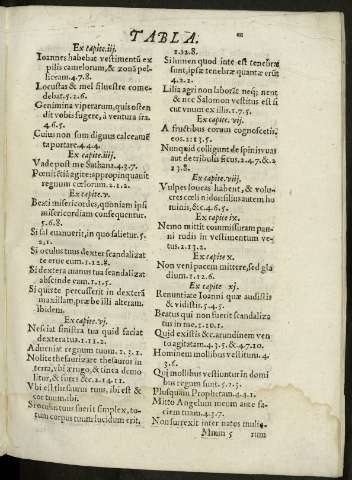 TABLA.
Ex capite.iij.
Ioannes habebat vestimentũ ex
pilis camelorum, & zonã pel-
liceam.4.7.8.
Locustas & mel siluestre come
debat.5.2.6.
Genimina viperarum, quis osten
dit vobis fugere, à ventura ira.
4.6.5.
Cuius non sum dignus calceamẽ
ta portare.4.4.4.
Ex capite.iiij.
Vade post me Sathana.4.3.7.
Pœnitẽtiã agite: appropinquauit
regnum cœlorum.2.1.2.
Ex capite.v.
Beati misericordes, quoniam ipsi
misericordiam consequentur.
5.6.8.
Si sal euanuerit, in quo salietur.5.
2.1.
Si oculus tuus dexter scandalizat
te erue eum.1.12.8.
Si dextera manus tua scandalizat
abscinde eam.1.2.5.
Si quis te percusserit in dexterã
maxillam, præbe illi alteram.
ibidem.
Ex capite.vj.
Nesciat sinistra tua quid faciat
dextera tua.1.11.2.
Adueniat regnum tuum.2.3.1.
Nolite thesaurizare thesauros in
terra, vbi ærugo, & tinea demo
litur, & fures &c.2.14.11.
Vbi est thesaurus tuus, ibi est &
cor tuum. ibi.
Si oculus tuus fuerit simplex, to-
tum corpus tuum lucidum erit,
1.12.8.
Si lumen quod inte est tenebræ
sunt, ipsæ tenebræ quantæ erũt
4.2.1.
Lilia agri non laborãt neq; nent
& nec Salomon vestitus est si
cut vnum ex illis.1.7.5.
Ex capite.vij.
A fructibus eorum cognoscetis,
eos.2.13.5.
Nunquid colligunt de spinis vuas
aut de tribulis ficus.2.4.7.&.2
13.8.
Ex capite.viij.
Vulpes foueas habent, & volu-
cres cœli nidos: filius autem ho
minis, &c.4.6.5.
Ex capite ix.
Nemo mittit commissuram pan-
ni rudis in vestimentum ve-
tus.2.13.2.
Ex capite x.
Non veni pacem mittere, sed gla
dium.1.12.6.
Ex capite xj.
Renuntiate Ioanni quæ audistis
& vidistis.5.4.8.
Beatus qui non fuerit scandaliza
tus in me.5.10.1.
Quid existis &c. arundinem ven-
to agitatam.4.3.5.&.4.7.10.
Hominem mollibus vestitum.4.
3.6.
Qui mollibus vestiuntur in domi
bus regum sunt.5.1.3.
Plusquam Prophetam.4.4.1.
Mitto Angelum meum ante fa-
ciem tuam.4.3.7.
Non surrexit inter natos mulie-
Mmm 5 rum